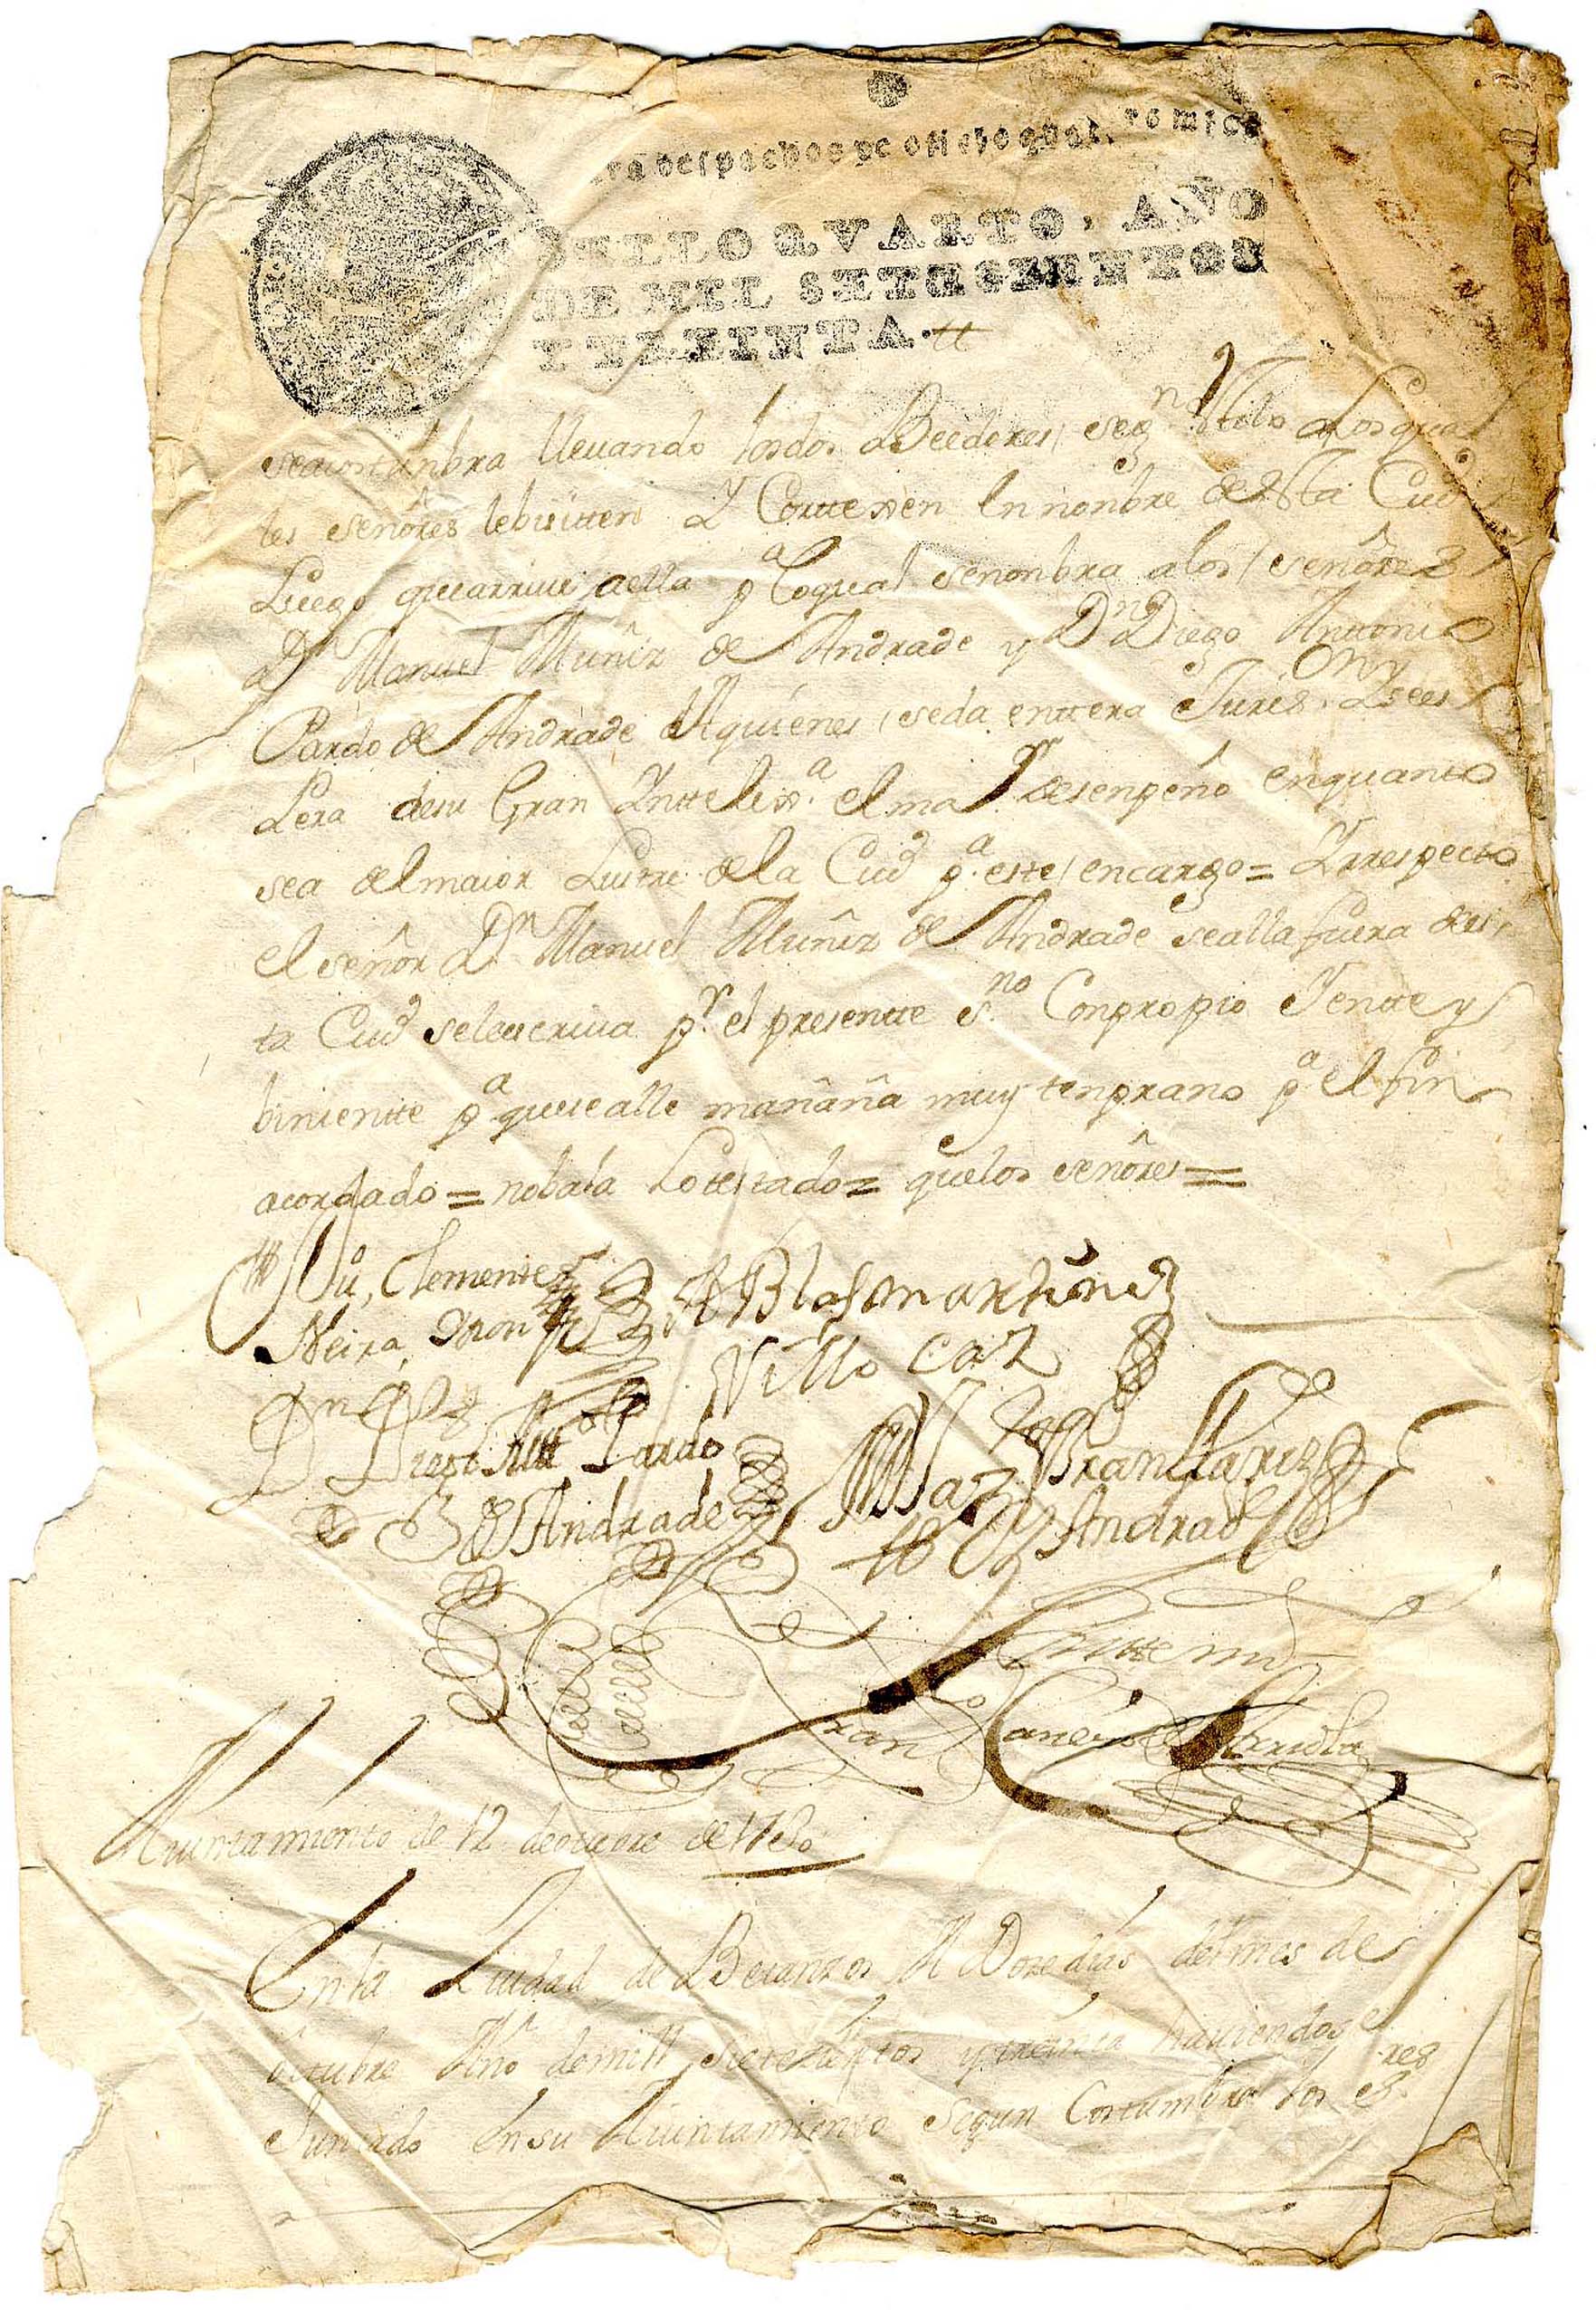 ra despachos de oficio quatro mrs
SELLO QVARTO, AÑO
DE MIL SETECIENTOS
Y TREINTA.
seacostunbra lleuando los dos Beedores seg.n stilo a Los qua
les señores lebisitten Y Corttexen En nonbre desta Ciud
Luego que arriue aella p.a Loqual senonbra alos señores
D.n Manuel Muñiz de Andrade y D.n Diego Anttonio
Pardo de Andrade Aquienes seda enttera Juris.on y sees
Pera desu Gran Ynttelix.a el ma.r desenpeño enquanto
sea delmaior Lustre dela Ciud p.a este encargo = Yrrespecto
el señor D.n Manuel Muñiz de Andrade sealla fuera des
ta Ciud seleescriua p.r el presentte s.no Conpropio Yentte y
binientte p.a quesealle mañana muy tenprano p.a el fin
acordado = nobala Lotestado = quelos señores =
Clemente
Neira
Blas martinez
Villo caz
D.n Diego Antt.o Pardo
de Andrade
Andrade
Antte mi
Fran.co
Aiuntamiento de 12 de otubre de 1730
Enla Ciudad de Betanzos A Doze dias del mes de
octubre Año demill Setezientos y treinta hauiendose
Juntado En su Aiuntamiento Segun Costumbre los S.res